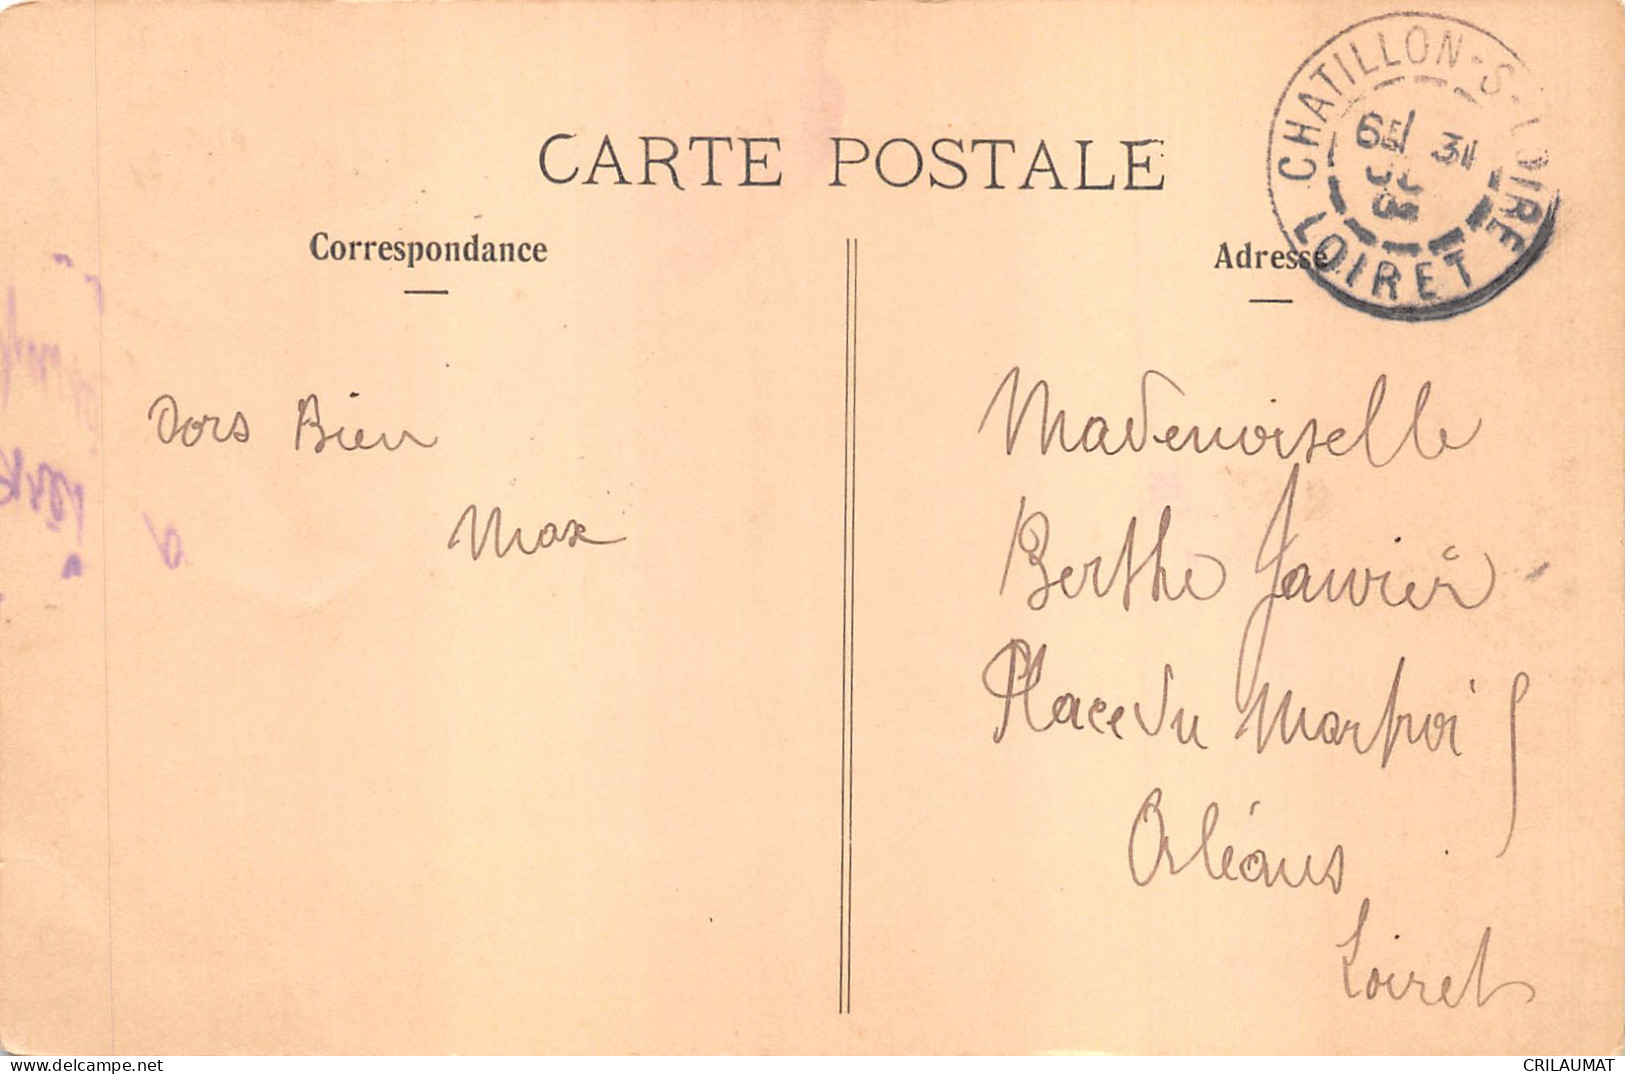 CARTE POSTALE
Correspondance
Adresse
CHATILLON-S-LOIRE
31
LOIRET
Dors Bien
Max
Mademoiselle
Berthe Janvier
Place du Martroi
Orléans
Loiret
www.delcampe.net
CRILAUMAT